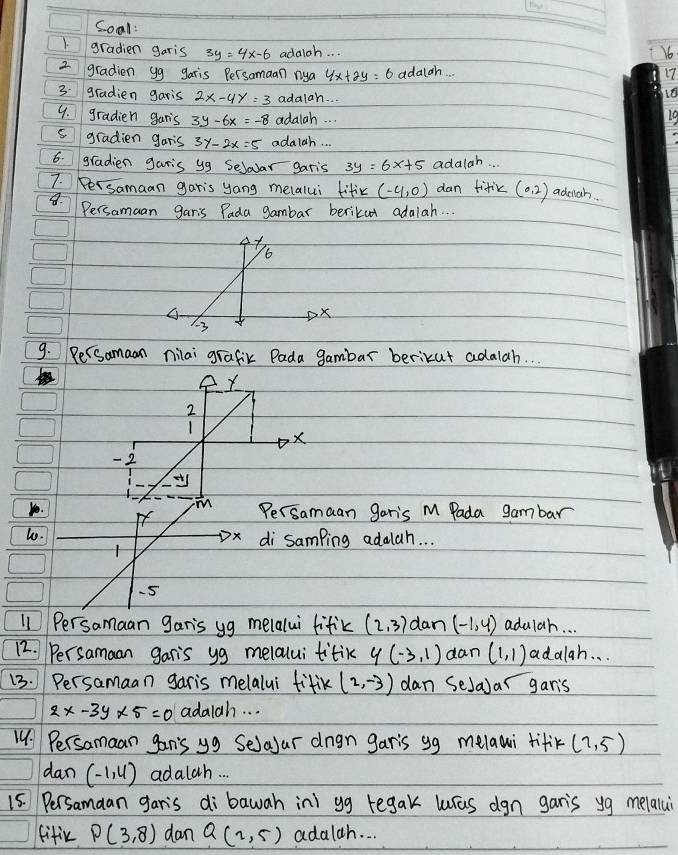 Soal:
1. gradien garis 3y = 4x-6 adalah...
2 gradien yg garis Persamaan nya 4x+2y = 6 adalah...
3. gradien garis 2x-4y = 3 adalah...
4. gradien garis 3y-6x = -8 adalah...
5 gradien garis 3y-2x = 5 adalah...
6. gradien garis yg Sejajar garis 3y = 6x+5 adalah...
7. Persamaan garis yang melalui titik (-4,0) dan titik (0,2) adalah...
8. Persamaan garis Pada gambar berikut adalah...
y
6
x
-3
9. Persamaan nilai grafik Pada gambar berikut adalah...
y
2
1
x
-2
m
Persamaan garis M Pada gambar
y
10.
x
di samping adalah...
1
-5
11 Persamaan garis yg melalui titik (2,3) dan (-1,4) adalah...
12. Persamaan garis yg melalui titik y (-3,1) dan (1,1) adalah...
13. Persamaan garis melalui titik (2,-3) dan Sejajar garis
2x-3y x 5 = 0 adalah...
14. Persamaan garis yg Sejajar dngn garis yg melalui titik (2,5)
dan (-1,4) adalah...
15. Persamaan garis di bawah ini yg tegak lurus dgn garis yg melalui
titik P(3,8) dan Q(2,5) adalah...
16
17
18
19